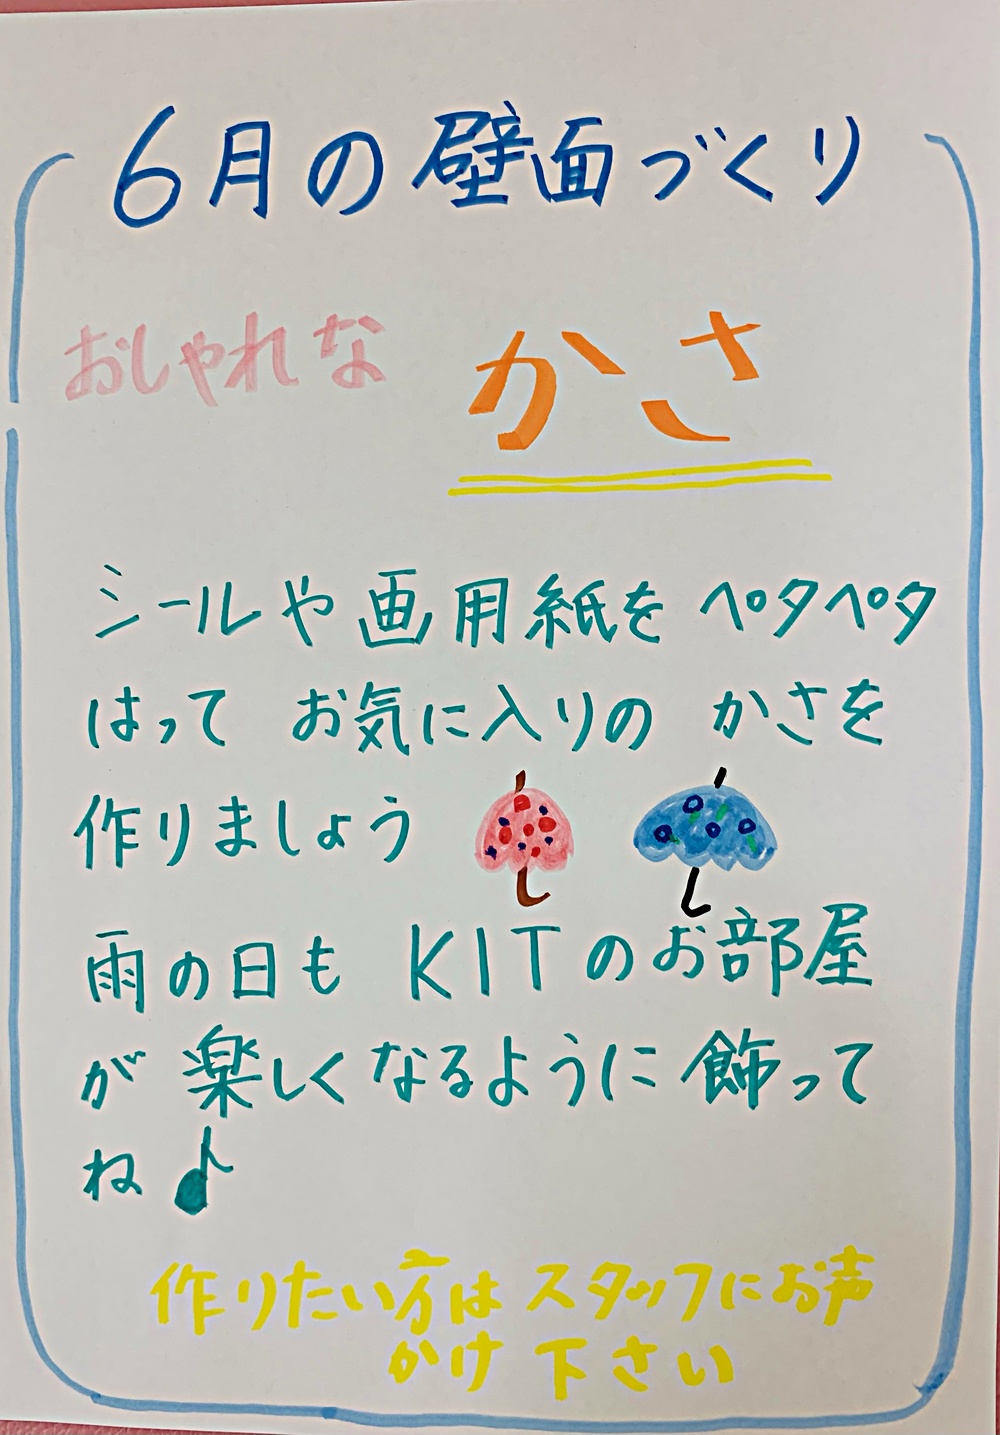 6月の壁面づくり
おしゃれな かさ
シールや画用紙をペタペタ
はって お気に入りの かさを
作りましょう
雨の日も KITのお部屋
が 楽しくなるように 飾って
ね♪
作りたい方は スタッフにお声
かけ 下さい